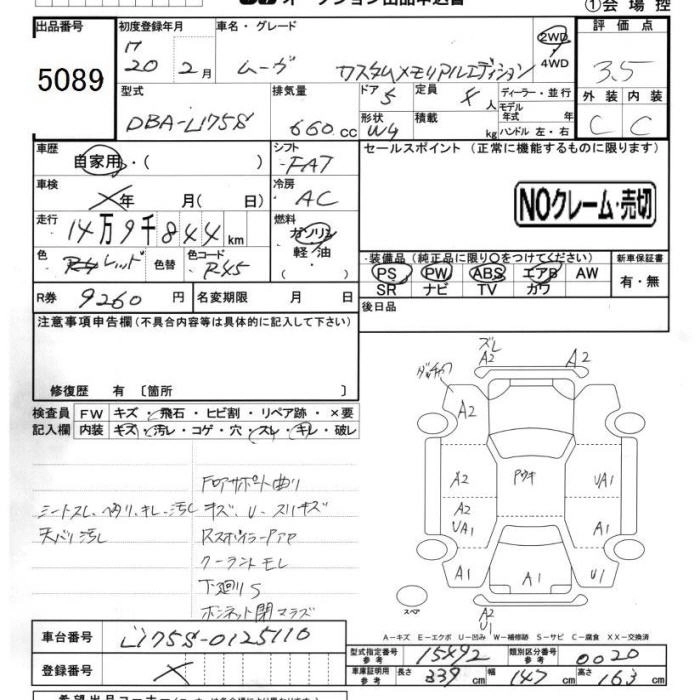 オークション出品申込書 ①会場控
出品番号 初度登録年月 車名・グレード 評価点
5089 H 20 2月 ムーヴ カスタムメモリアルエディション 2WD 4WD 3.5
型式 排気量 ドア 定員 ディーラー・並行 外装 内装
DBA-L175S 660cc 5 4人 モデル年式 年 C C
形状 W4 積載 kg ハンドル 左・右
車歴 自家用・( ) シフト FAT セールスポイント(正常に機能するものに限ります)
車検 年 月( 日) 冷房 AC
NOクレーム・売切
走行 14万9千844km 燃料 ガソリン 軽・油
・( )
色 レッド 色替 色コード R45 装備品(純正品に限り○をつけてください) 新車保証書
PS PW ABS エアB AW 有・無
SR ナビ TV カワ
R券 9260円 名変期限 月 日
後日品
注意事項申告欄(不具合内容等は具体的に記入して下さい)
修復歴 有〔箇所 〕
検査員 FW キズ・飛石・ヒビ割・リペア跡・×要
記入欄 内装 キズ・汚レ・コゲ・穴・スレ・キレ・破レ
Fロアサポート曲り
シートスレ、ヘタリ、キレ、汚レ キズ、U、スリキズ
天バリ汚レ Rスポイラー
クーラントモレ
下廻りS
ボンネット閉マラズ
ズレ
A2 A2
A2
A2 UA1
A2 A1
UA1
A1 A1 U1
スペア
A2
U1
A-キズ E-エクボ U-凹み W-補修跡 S-サビ C-腐食 XX-交換済
車台番号 L175S-0125110
型式指定番号 参考 15492 類別区分番号 参考 0020
登録番号
車庫証明用 参考 長さ 339cm 幅 147cm 高さ 163cm